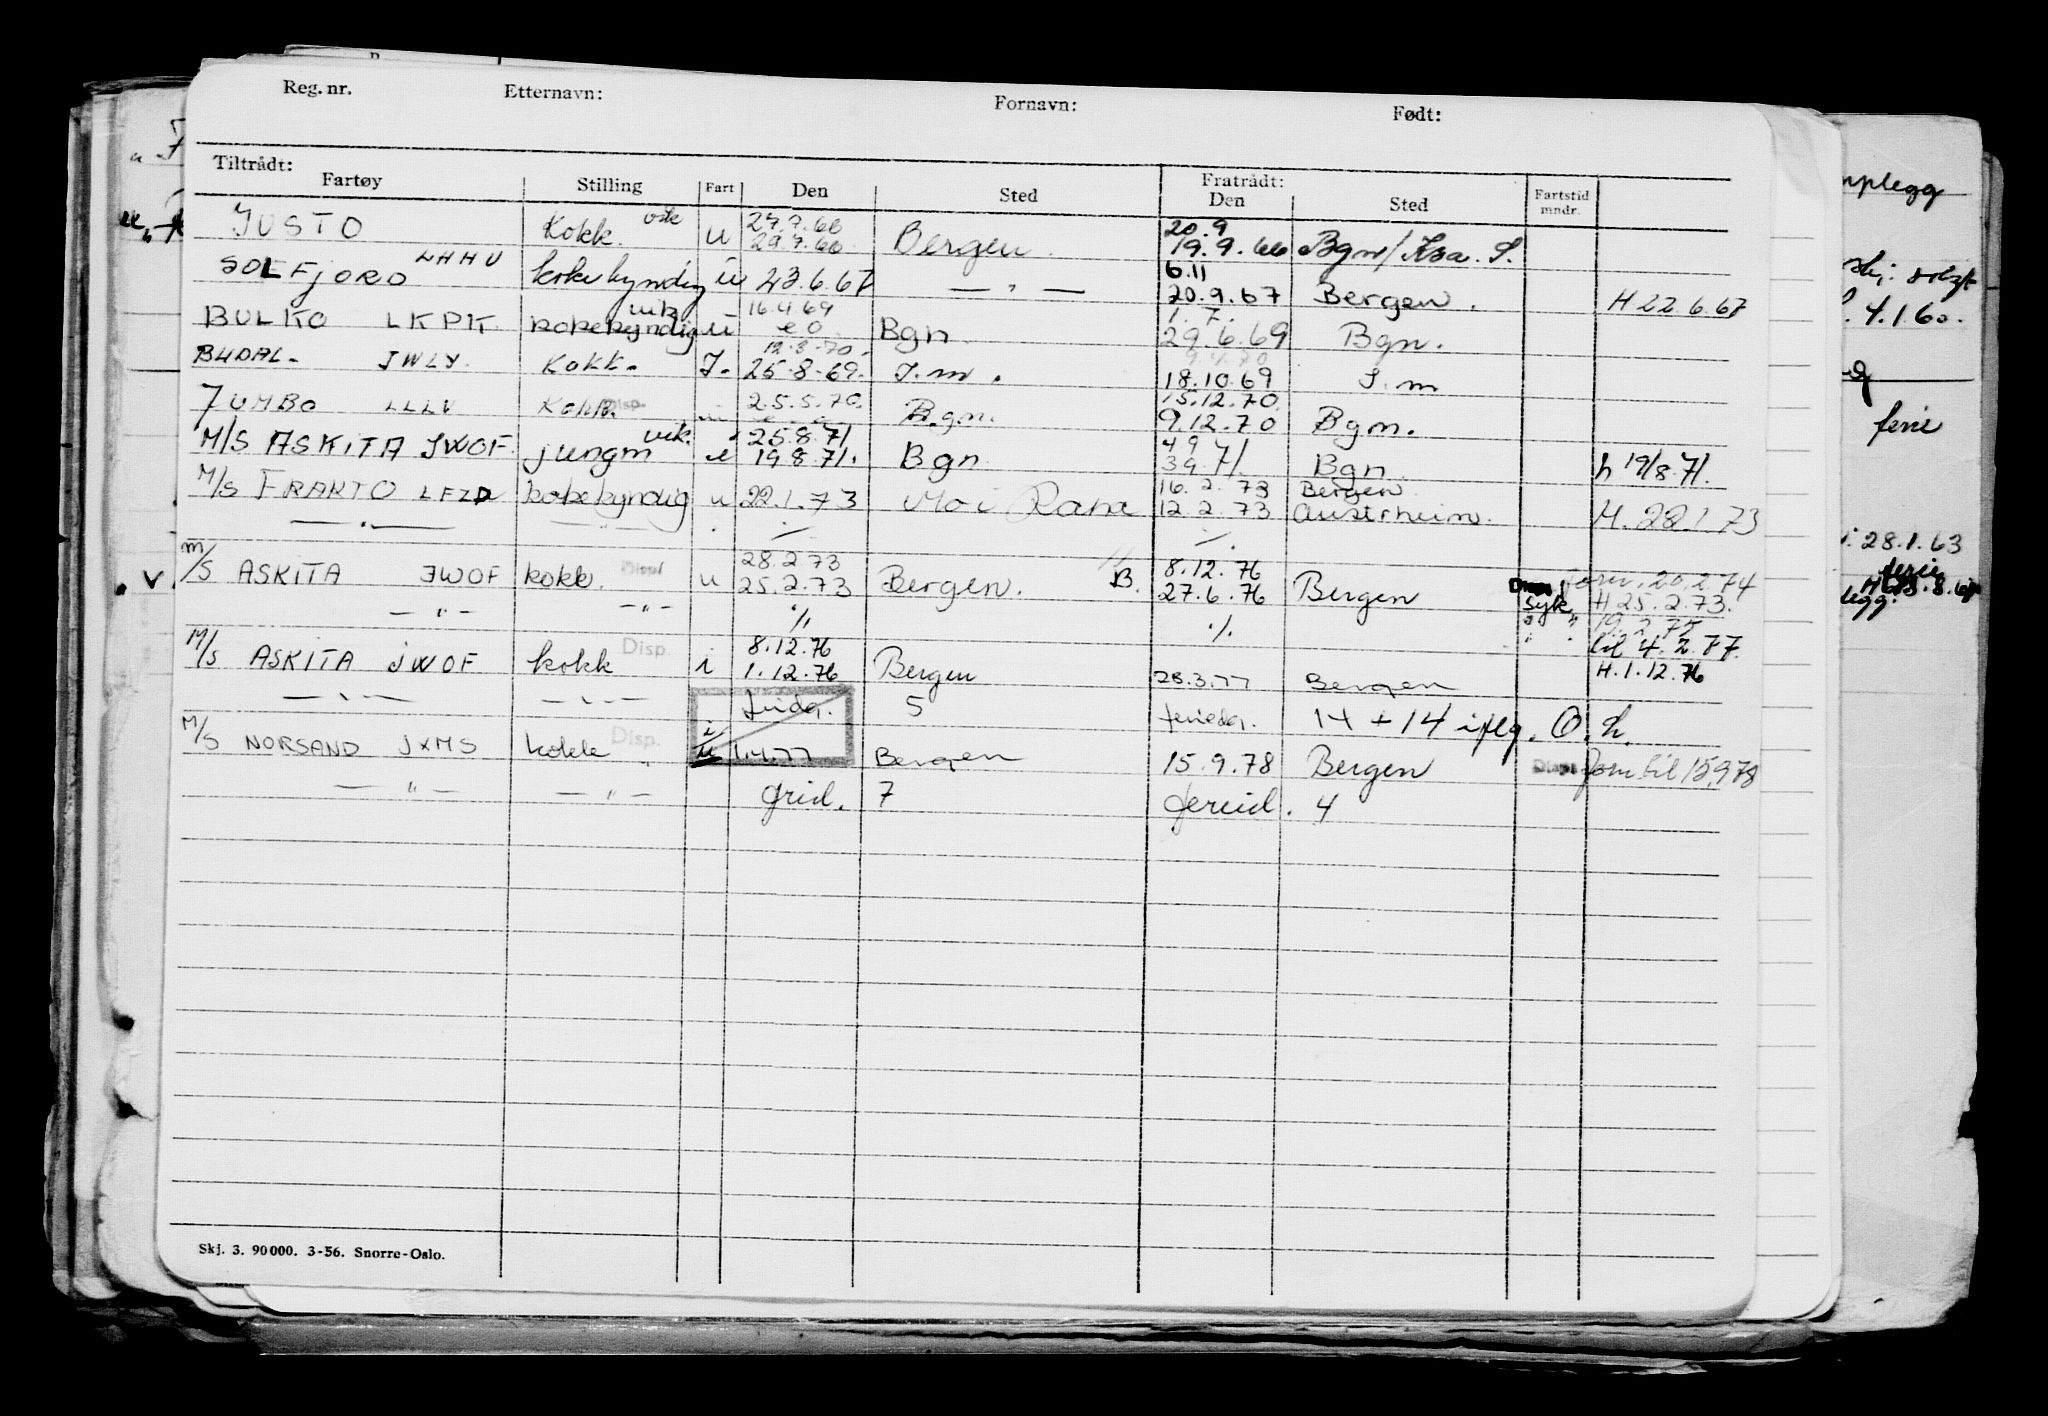 Reg. nr. Etternavn: Fornavn: Født:
Tiltrådt: Fratrådt:
Fartøy Stilling Fart Den Sted Den Sted Fartstid mndr.
vik 20.9
JUSTO Kokk. u 29.7.66 Bergen 19.9.66 Bgn/
LHHU 6.11
SOLFJORD kokekyndig u 23.6.67 — " — 20.9.67 Bergen. H 22.6.67
vik 16.4.69 1.7.
BULKO LKPK kokekyndig u Bgn 29.6.69 Bgn.
12.3.70 9.4.70
BUDAL JWLY. KOKK. J. 25.8.69. J.m. 18.10.69 J.m
Disp. 25.5.70. 15.12.70
JUMBO LLLV Kokk. Bgn. 9.12.70 Bgn.
vik. 25.8.71 4 9
M/S ASKITA JWOF. jungm 19.8.71. Bgn 39 71. Bgn h 19/8.71.
16.2.73 Bergen
M/S FRAKTO kokekyndig u 22.1.73 Mo i Rana 12.2.73 Austrheim. H. 22.1.73
— " — — " — ·/. ·/.
28.2.73 8.12.76
M/S ASKITA JWOF kokk. Disp u 25.2.73 Bergen. B. 27.6.76 Bergen syk H 25.2.73.
— " — — " — ·/. ·/. " " 19.2.75
8.12.76 " . til 4.2.77.
M/S ASKITA JWOF kokk Disp. i 1.12.76 Bergen 28.3.77 Bergen H.1.12.76
— " — — " — 5 feriedg. 14 + 14 iflg. O.h.
M/S NORSAND JXMS kokk Disp. i u 1.4.77 Bergen 15.9.78 Bergen Disp. til 15.9.78
— " — — " — frid. 7 fereid. 4
Skj. 3. 90000. 3-56. Snorre-Oslo.
4.1.60.
ferie
28.1.63
ferie